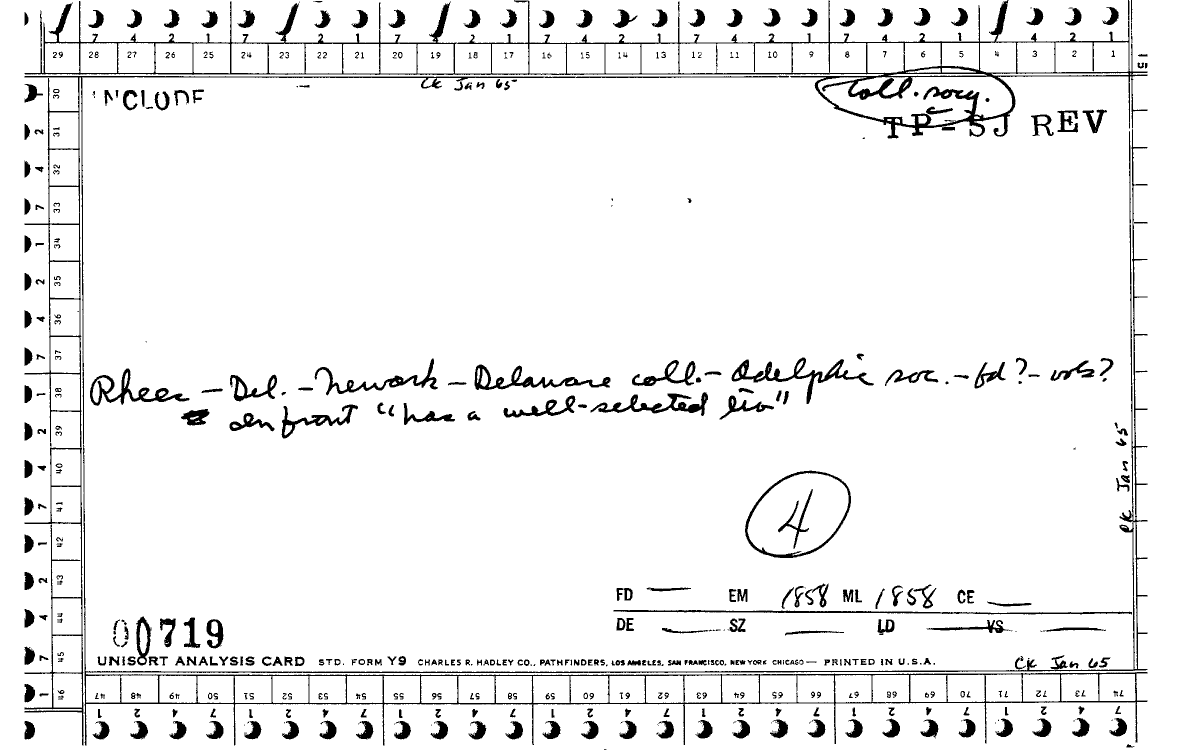 7 4 2 1 7 4 2 1 7 4 2 1 7 4 2 1 7 4 2 1 7 4 2 1 7 4 2 1
29 28 27 26 25 24 23 22 21 20 19 18 17 16 15 14 13 12 11 10 9 8 7 6 5 4 3 2 1
ck Jan 65
INCLUDE
Coll. socy.
TP-SJ REV
1 30
2 31
4 32
7 33
1 34
2 35
4 36
7 37
1 38
2 39
4 40
7 41
1 42
2 43
4 44
7 45
1 46
Rhees - Del. - Newark - Delaware coll. - Adelphic soc. - fd? - vols?
in front "has a well-selected lib"
ck Jan 65
4
FD — EM 1858 ML 1858 CE —
DE — SZ — LD — VS —
00719
UNISORT ANALYSIS CARD STD. FORM Y9 CHARLES R. HADLEY CO., PATHFINDERS, LOS ANGELES, SAN FRANCISCO, NEW YORK CHICAGO — PRINTED IN U.S.A.
Ck Jan 65
47 48 49 50 51 52 53 54 55 56 57 58 59 60 61 62 63 64 65 66 67 68 69 70 71 72 73 74
1 2 4 7 1 2 4 7 1 2 4 7 1 2 4 7 1 2 4 7 1 2 4 7 1 2 4 7